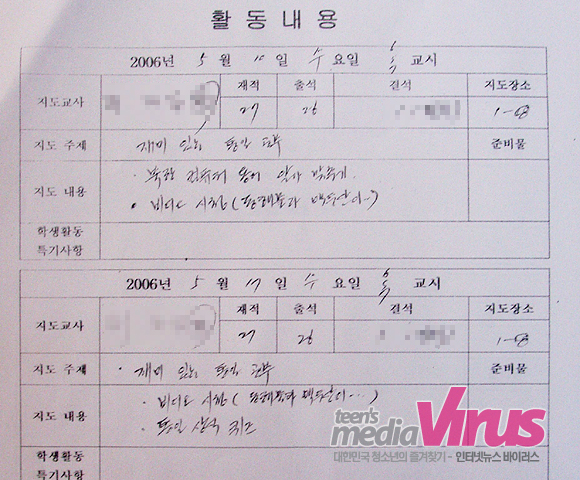 활동내용
2006년 5월 10일 수요일 6교시
지도교사 재적 출석 결석 지도장소
27 26 1-8
지도 주제 재미 있는 통일 공부 준비물
지도 내용 · 북한 컴퓨터 용어 알아 맞추기
· 비디오 시청 (동해물과 백두산이~)
학생활동
특기사항
2006년 5월 17일 수요일 6교시
지도교사 재적 출석 결석 지도장소
27 26 1-8
지도 주제 · 재미 있는 통일 공부 준비물
지도 내용 · 비디오 시청 (동해물과 백두산이...)
· 통일 상식 퀴즈
학생활동
특기사항
teen's
media Virus
대한민국 청소년의 즐겨찾기 - 인터넷뉴스 바이러스